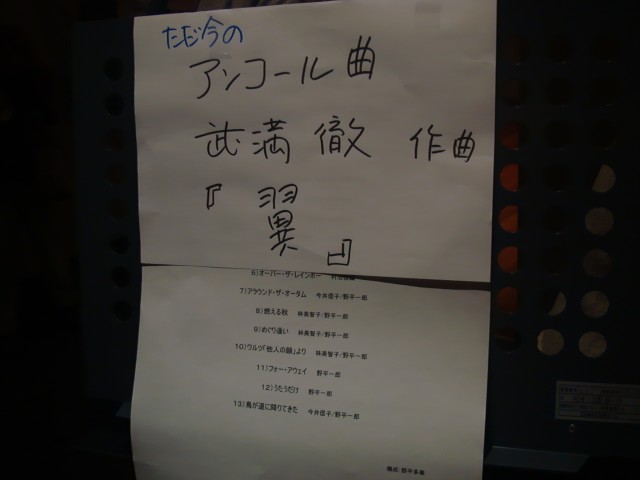 ただ今の
アンコール曲
武満 徹 作曲
『翼』
6)オーバー・ザ・レインボー
7)アラウンド・ザ・オータム 今井信子/野平一郎
8)燃える秋 林美智子/野平一郎
9)めぐり逢い 林美智子/野平一郎
10)ワルツ「他人の顔」より 林美智子/野平一郎
11)フォー・アウェイ 野平一郎
12)うたうだけ 野平一郎
13)鳥が道に降りてきた 今井信子/野平一郎
構成:野平多美